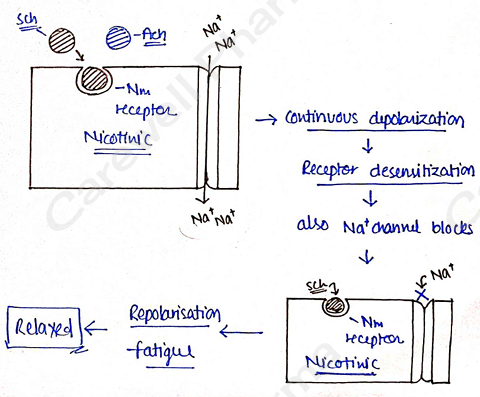 Sch
Ach
Na⁺
Na⁺
Nm
receptor
Nicotinic
Na⁺ Na⁺
→ continuous depolarization
Receptor desensitization
also Na⁺ channel blocks
Sch
Na⁺
Nm
receptor
Nicotinic
Repolarisation
fatigue
Relaxed